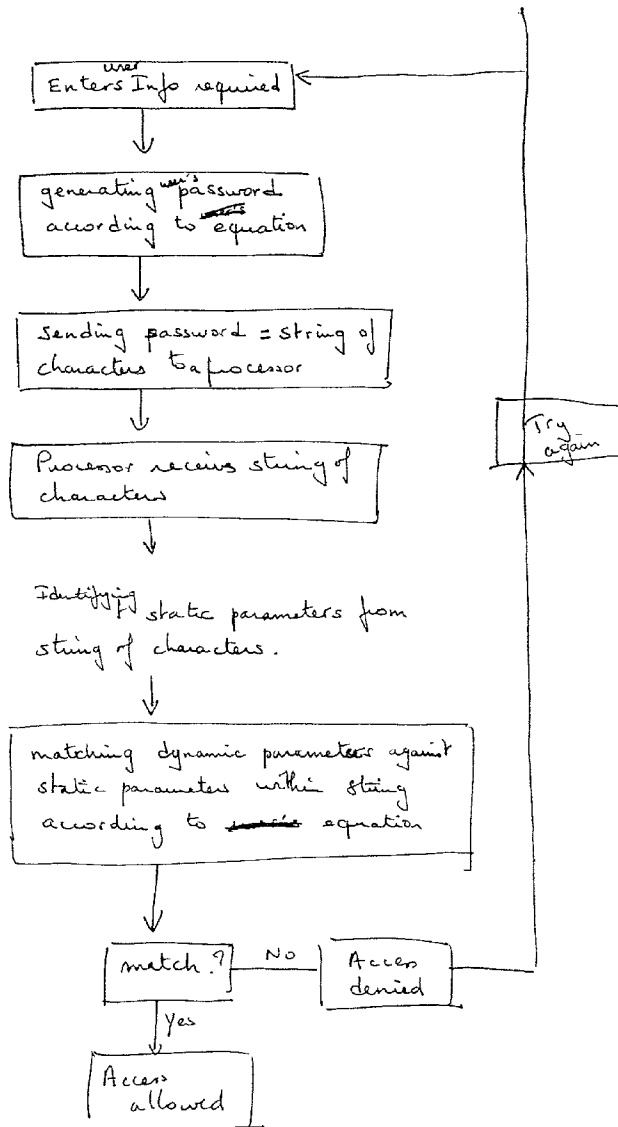 user
Enters Info required
generating user's password
according to equation
Sending password = string of
characters to a processor
Try
again
Processor receives string of
characters
Identifying static parameters from
string of characters.
matching dynamic parameters against
static parameters within string
according to equation
match?
No
Access
denied
Yes
Access
allowed